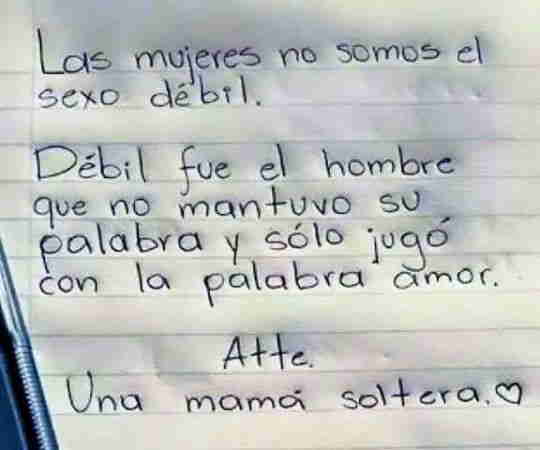 Las mujeres no somos el
sexo débil.
Débil fue el hombre
que no mantuvo su
palabra y sólo jugó
con la palabra amor.
Atte.
Una mamá soltera.♡